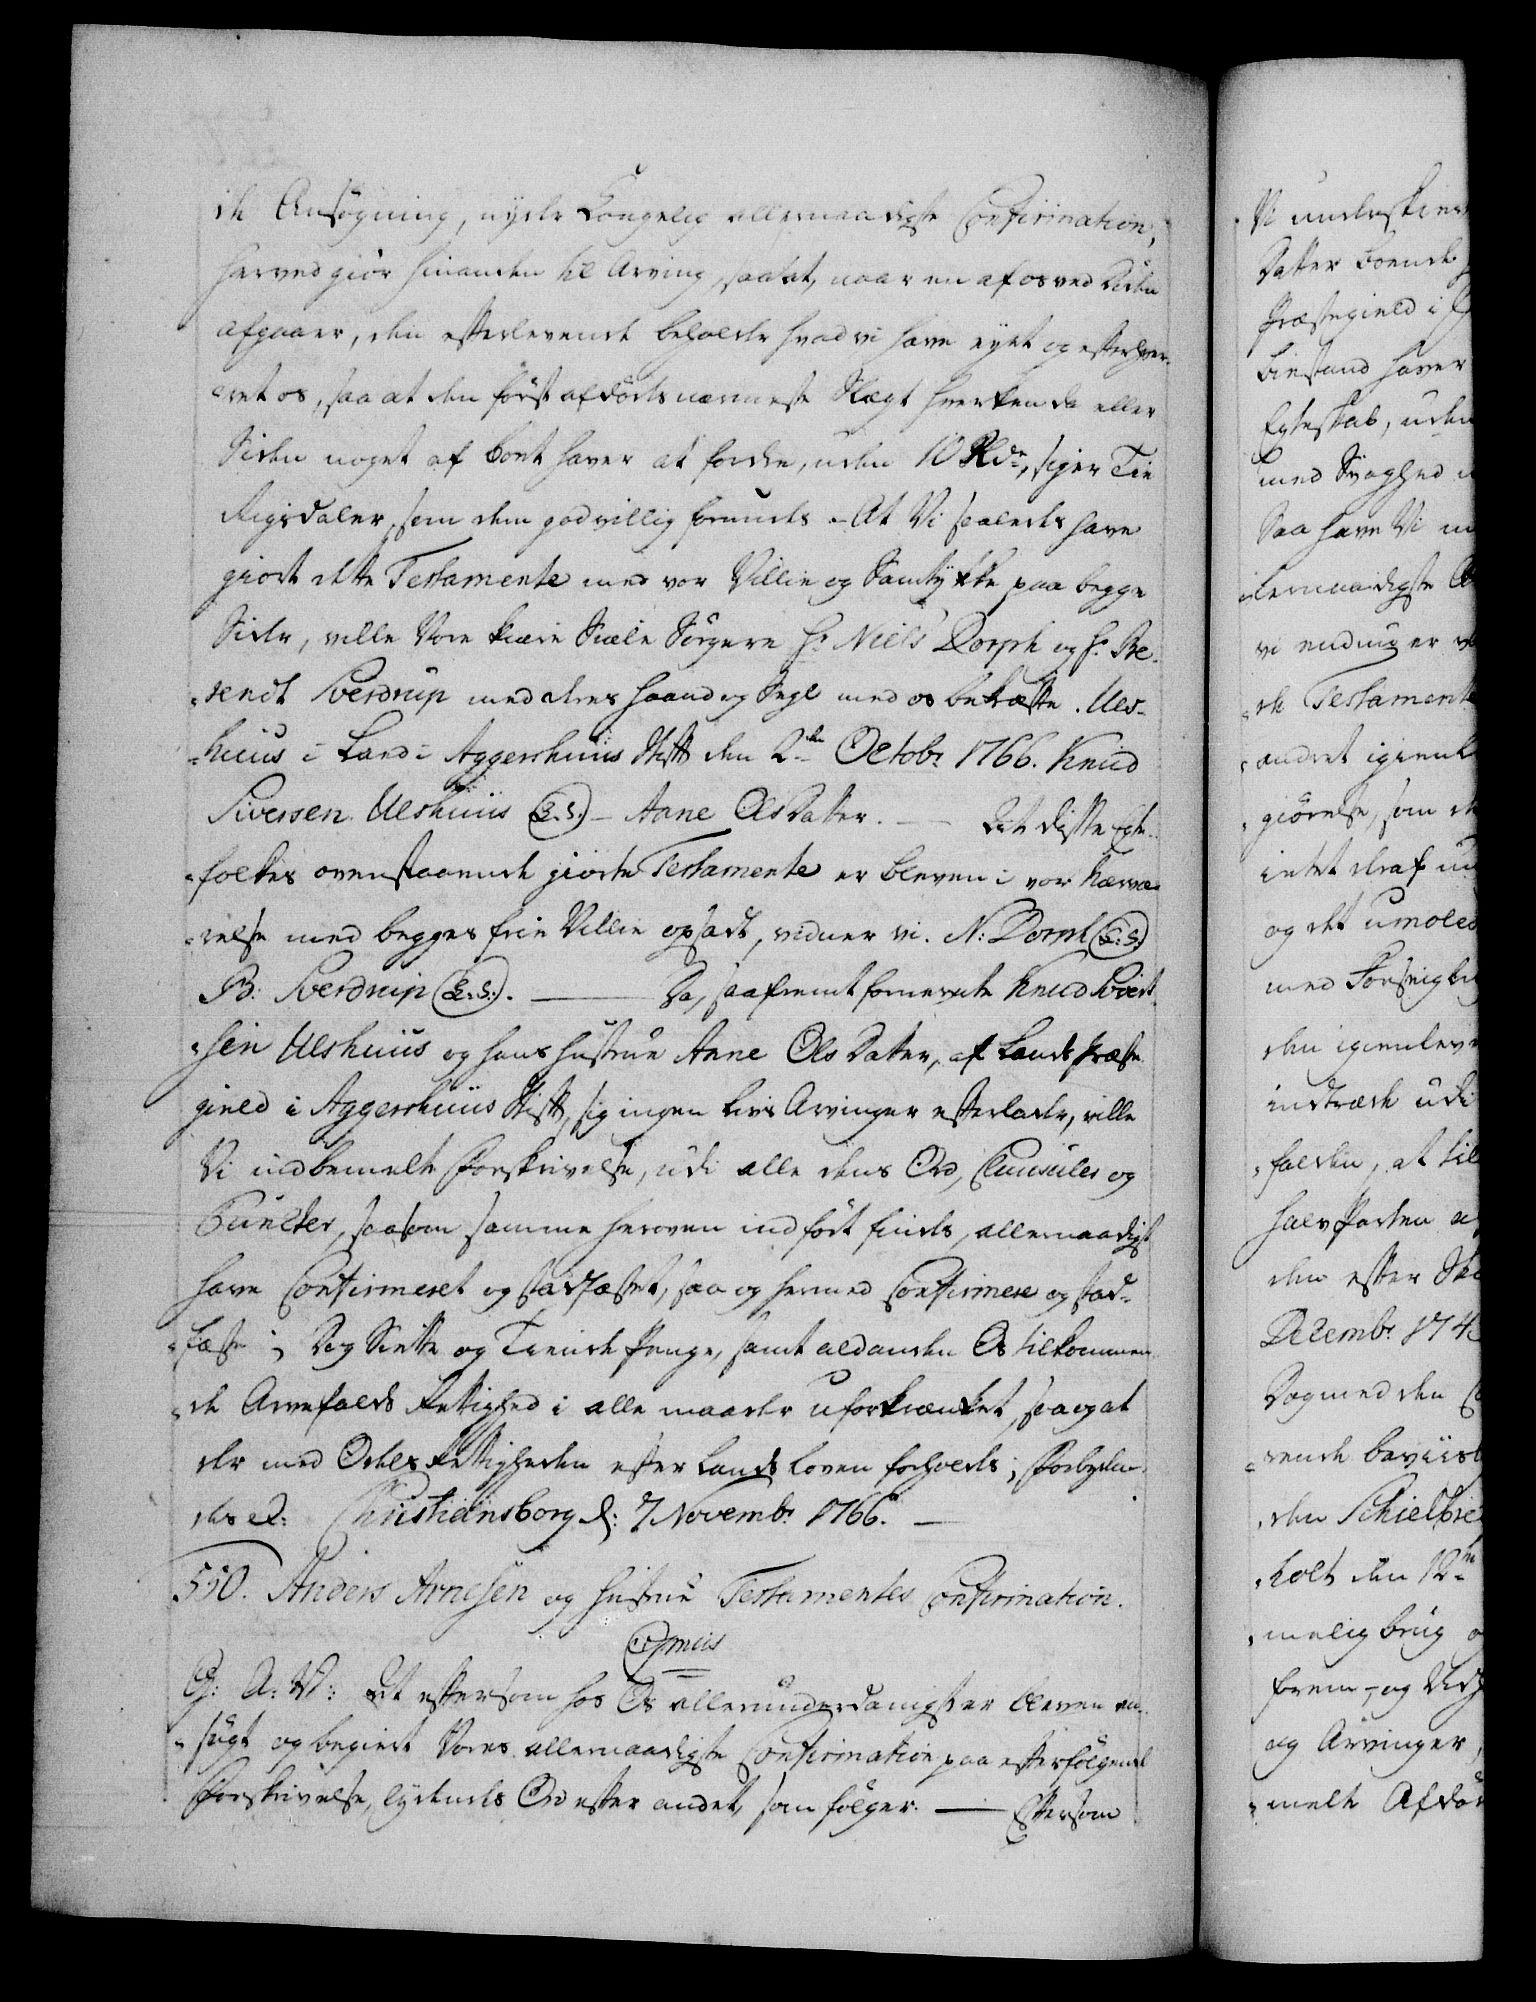 de Ansøgning, nyde Kongelig allernaadigste Confirmation,
herved giør hinanden til Arving, saa at, naar en af os ved Døden
afgaaer, den efterlevende beholder hvad vi have eyet og efterhver-
-vet os, saa at den først afdødes nærmeste Slægt hverken da eller
Siden noget af boet haver at fordre, uden 10 Rdr, siger Tie
Rigsdaler, som dem godvillig forundes. At Vi saaledes have
giort dette Testamente med vor Villie og Samtykke paa begge
Sider, ville Vore kiære Siæle Sørgere Hr Niels Dorph og Hr Be-
-rendt Sverdrup med deres Haand og Segl med os bekræfte. Ules-
-huus i Land i Aggershuus Stift den 2den Octobr 1766. Knud
Siversen Uleshuus (L.S.) - Anne OlsDatter. — At disse Egte-
-folkes ovenstaaende giorte Testamente er bleven i vor Nærvæ-
-relse med begges frie Villie opsadt, vidner vi. N: Dorph (L:S:)
B: Sverdrup (L:S:). — Da, saafremt fornevnte Knud Sivert-
-sen Uleshuus og hans Hustrue Anne Ols Datter, af Lands Præste
gield i Aggershuus Stift, sig ingen Livs Arvinger efterlader, ville
Vi indbemelte Forskrivelse, udi alle dens Ord, Clausuler og
Puncter, saasom samme heroven indført findes, allernaadigst
have Confirmeret og stadfæstet, saa og hermed Confirmere og stad-
-fæste; Dog Siette og Tiende Penge, samt ald anden Os tilkommen-
-de Arvefalds Rettighed i alle maader uforkrænket, saa og at
der med Odels Rettigheden efter Lands Loven forholdes; Forbyden-
des &: Christiansborg d: 7 Novembr 1766. —
550. Anders Arnesen og Hustrue Testamentes Confirmation.
Gratis
G: A: V: At eftersom hos Os allerunderdanigst er bleven an-
-søgt og begiert Vores allernaadigste Confirmation paa efterfølgende
Forskrivelse, lydendes Ord efter andet, som følger. — Eftersom
Vi underskrev
Datter boende
Præstegield i
bistand haver
Egteskab, uden
med Svaghed
Saa have Vi
-lernaadigste
vi endnu er
-de Testamente
-andret igienk
-giørelse, som
intet deraf
og det umoled
med Forsigtig
den igienleve
indtræde udi
-falden, at til
halv Parten
den efter
Decembr 174
Dog med den
-rende beviisl
-den Schielbre
-holt den 12te
-melig brug
frem-, og Ved
og Arvinger,
-melte Afdø